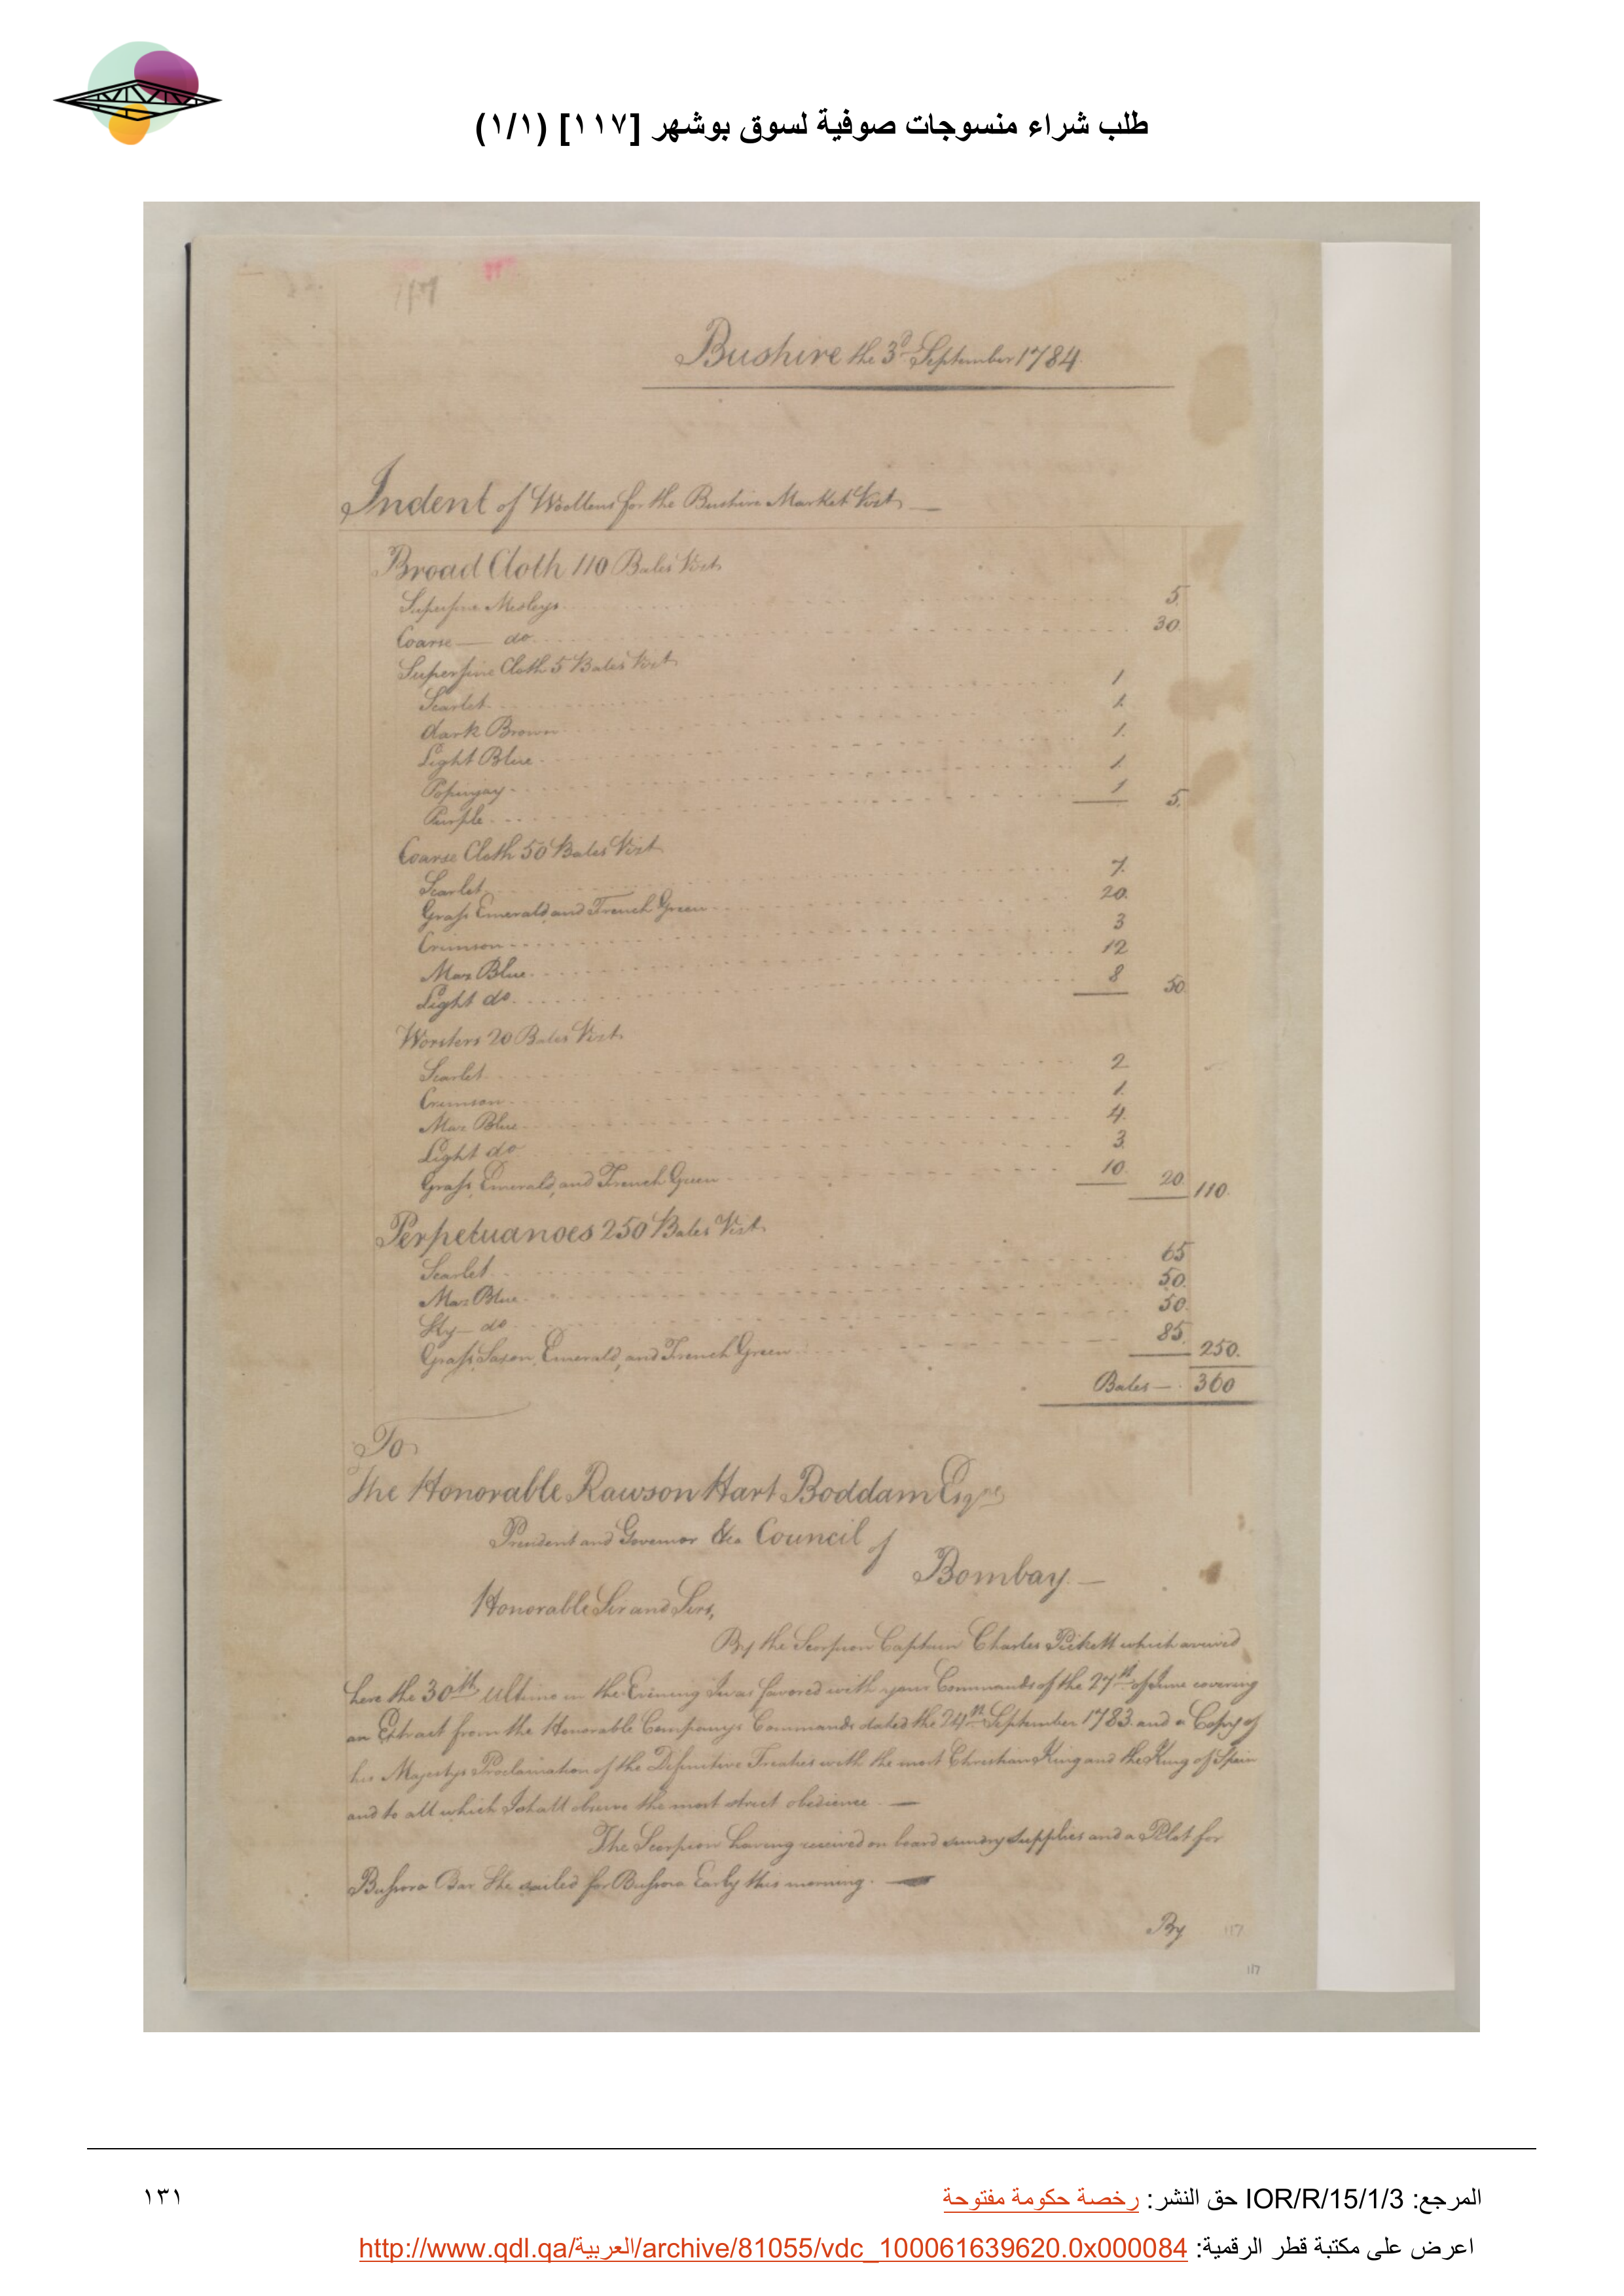 طلب شراء منسوجات صوفية لسوق بوشهر [١١٧] (١/١)
117
Bushire the 3d September 1784
Indent of Woollens for the Bushire Market Vizt
Broad Cloth 110 Bales Vizt
Superfine Medleys 5
Coarse — do 30
Superfine Cloth 5 Bales Vizt
Scarlet 1
dark Brown 1
Light Blue 1
Popinjay 1
Purple 1 5
Coarse Cloth 50 Bales Vizt
Scarlet 7
Grass Emerald and French Green 20
Crimson 3
Maz Blue 12
Light do 8 50
Worsters 20 Bales Vizt
Scarlet 2
Crimson 1
Maz Blue 4
Light do 3
Grass, Emerald, and French Green 10 20 110
Perpetuanoes 250 Bales Vizt
Scarlet 65
Maz Blue 50
Sky — do 50
Grass, Saxon, Emerald, and French Green 85 250
Bales — 360
To
The Honorable Rawson Hart Boddam Esqre
President and Governor &ca Council of
Bombay —
Honorable Sir and Sirs,
By the Scorpion Captain Charles Pickett which arrived
here the 30th Ultimo in the Evening I was favored with your Commands of the 27th of June covering
an Extract from the Honorable Companys Commands dated the 24th September 1783 and a Copy of
his Majestys Proclamation of the Definitive Treaties with the most Christian King and the King of Spain
and to all which I shall observe the most strict obedience —
The Scorpion having received on board sundry supplies and a Pilot for
Bussora Bar She sailed for Bussora Early this morning. —
By
117
117
المرجع: IOR/R/15/1/3 حق النشر: رخصة حكومة مفتوحة
١٣١
اعرض على مكتبة قطر الرقمية: http://www.qdl.qa/العربية/archive/81055/vdc_100061639620.0x000084